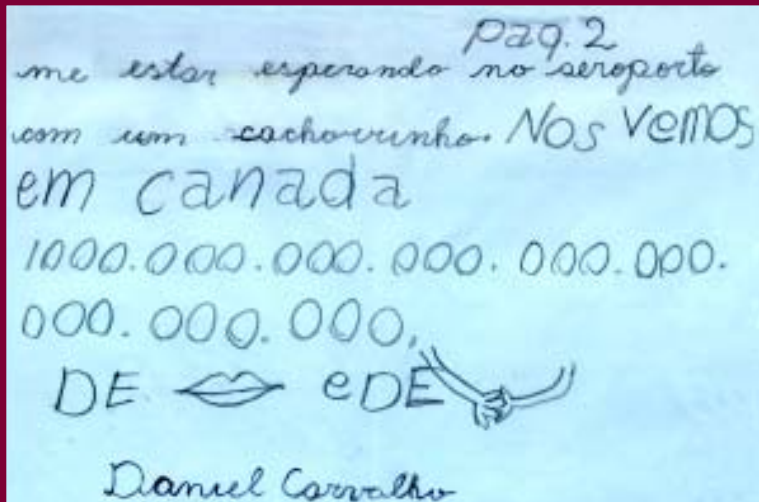 pag. 2
me estar esperando no aeroporto
com um cachorrinho. Nos vemos
em canada
1000.000.000.000.000.000.
000.000.000,
DE e DE
Daniel Carvalho